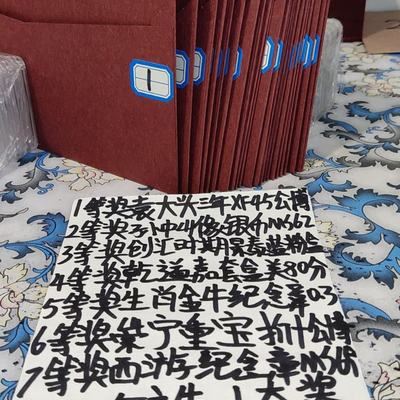 1
1等奖袁大头三年XF45公博
2等奖孙中山像银币MS62
3等奖创汇时期景泰蓝粉盒
4等奖乾隆嘉套盒美80分
5等奖生肖金牛纪念章0.3
6等奖崇宁重宝折十公博
7等奖西游纪念章MS69
大奖